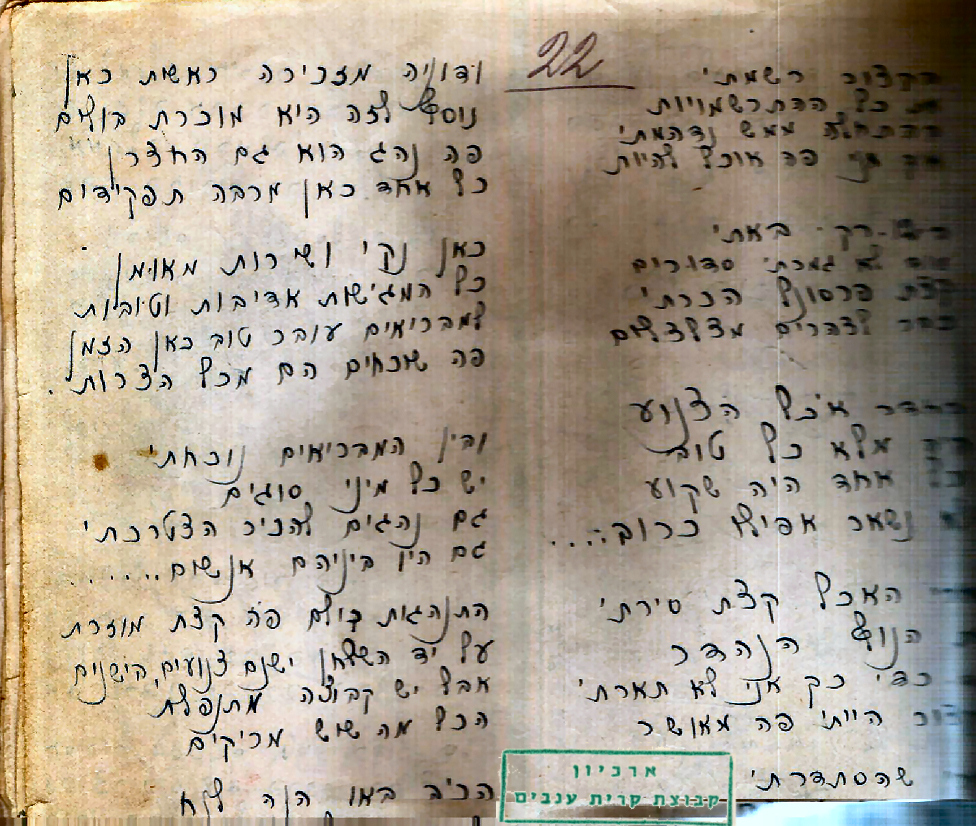 22
בקצור רשמתי
את כל ההתרשמויות
בהתחלה ממש נדהמתי
איך אני פה אוכל להיות
רק באתי
עוד לא גמרתי סדורים
קצת פרסונל הכרתי
כבר לצהרים מצלצלים
בחדר אכל הצנוע
היה מלא כל טוב
כל אחד היה שקוע
לא נשאר אפילו כרוב....
האכל קצת סירתי
הנוף הנהדר
כדי כך אני לא תארתי
הייתי פה מאושר
שהסתדרתי
ודוניה מזכירה ראשית כאן
נוסף לזה היא מוכרת בולים
פה נהג הוא גם החצרן
כל אחד כאן מרבה תפקידים
כאן נקי ושרות מאומן
כל המגישות אדיבות וטובות
למבריאים עובר טוב כאן הזמן
פה שוכחים הם מכל הצרות.
ובין המבריאים נוכחתי
יש כל מיני סוגים
גם נהגים להכיר הצטרכתי
גם היו ביניהם אנשים.......
התנהגות כולם פה קצת מוזרת
על יד השלחן ישנם צנועים, הישנים
אבל יש קבוצה מתנפלת
הכל מה שיש מריקים
באו הנה
ארכיון
קבוצת קרית ענבים